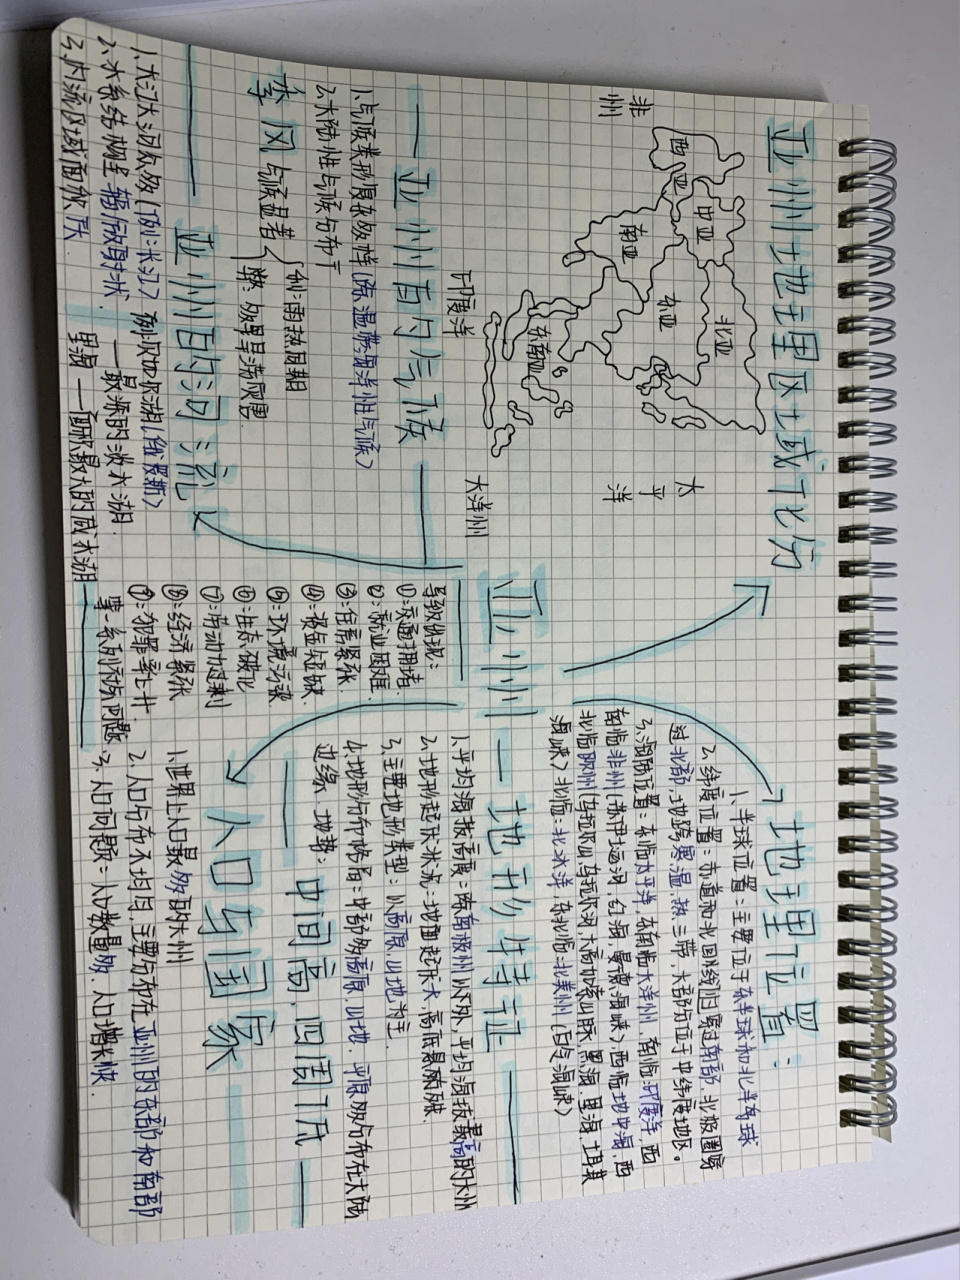 亚洲地理区域化分
非
州
西亚
中亚
北亚
南亚
东亚
东南亚
印度洋
太
平
洋
大洋州
亚州
地理位置:
1、半球位置:主要位于东半球和北半球
2、纬度位置:赤道和北回归线门穿过南部,北极圈穿
过北部,地跨寒温热三带,大部分位于中纬度地区。
3、海陆位置:东临太平洋,东南临大洋州、南临:印度洋 西
南临非州(苏伊士运河,红海,曼德海峡)西临地中海,西
北临欧州(乌拉尔山,乌拉尔河 大高加索山脉 黑海、里海、土耳其
海峡)北临:北冰洋 东北临:北美州(白令海峡)
地形特征
1、平均海拔高度:除南极州以外、平均海拔最高的大州
2、地形起伏状况:地面起伏大、高低悬殊
3、主要地形类型:以高原、山地为主.
4、地形分布格局:中部多高原、山地、平原多分布在大陆
边缘、地势:中间高、四周低
人口与国家
1.世界上人口最多的大州
2、人口分布不均匀,主要分布在亚州的东部和南部
3、人口问题:人口数量多、人口增长快.
导致出现:
①:交通拥堵.
②:就业困难
③:住房紧张.
④:资源短缺.
⑤:环境污染
⑥:生态破化
⑦:劳动力过剩
⑧:经济紧张
⑨:犯罪率上升.
等一系列的问题.
亚州的气候
1.气候类型复杂多样(除温带海洋性气候)
2、大陆性气候分布广
季风气候显著
利:雨热同期
弊:多旱旱涝灾害.
亚州的河流
1.大江大河众多(例:长江)
2、水系结构呈辐放射状.
3、内流区域面积大
贝加尔湖
—最深的淡水湖.
里海—面积最大的咸水湖